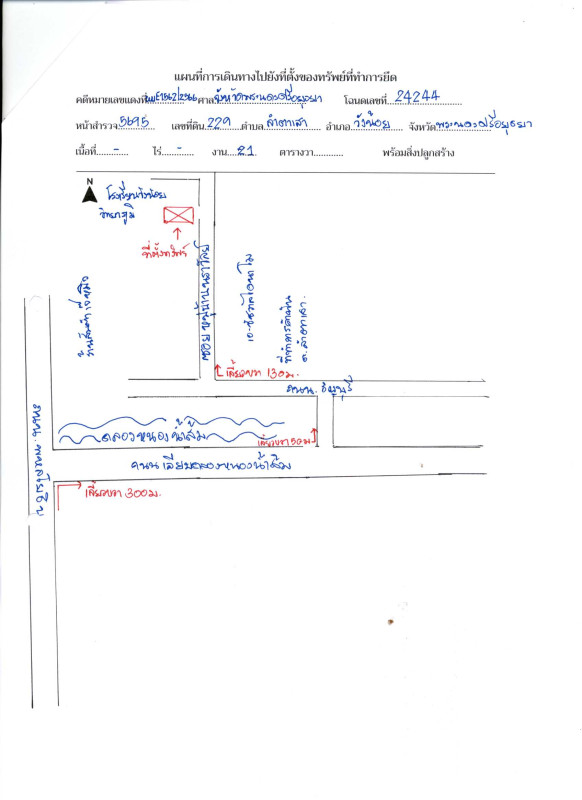 แผนที่การเดินทางไปยังที่ตั้งของทรัพย์ที่ทำการยึด
คดีหมายเลขแดงที่ ผบE1562/2566 ศาลจังหวัดพระนครศรีอยุธยา โฉนดเลขที่ 24244
หน้าสำรวจ 5695 เลขที่ดิน 229 ตำบล ลำตาเสา อำเภอ วังน้อย จังหวัด พระนครศรีอยุธยา
เนื้อที่ - ไร่ - งาน 21 ตารางวา พร้อมสิ่งปลูกสร้าง
N
โรงเรียนวังน้อย
วิทยาภูมิ
ที่ตั้งทรัพย์
ซอย
ที่ทำการกำนัน
ต.ลำตาเสา
เลี้ยวขวา 130 ม.
ถนน. ธัญบุรี
คลองหนองน้ำส้ม
เลี้ยวขวา 50 ม
ถนนเลียบคลองหนองน้ำส้ม
ถนน. พหลโยธิน
เลี้ยวขวา 300 ม.